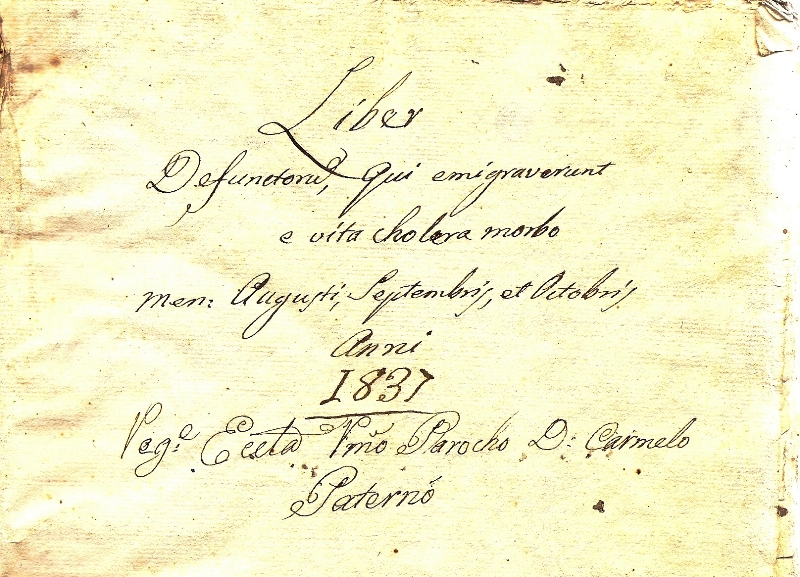 Liber
Defunctorũ, qui emigraverunt
e vita cholera morbo
men: Augusti, Septembris, et Octobris
Anni
1837
Parocho D: Carmelo
Paternò